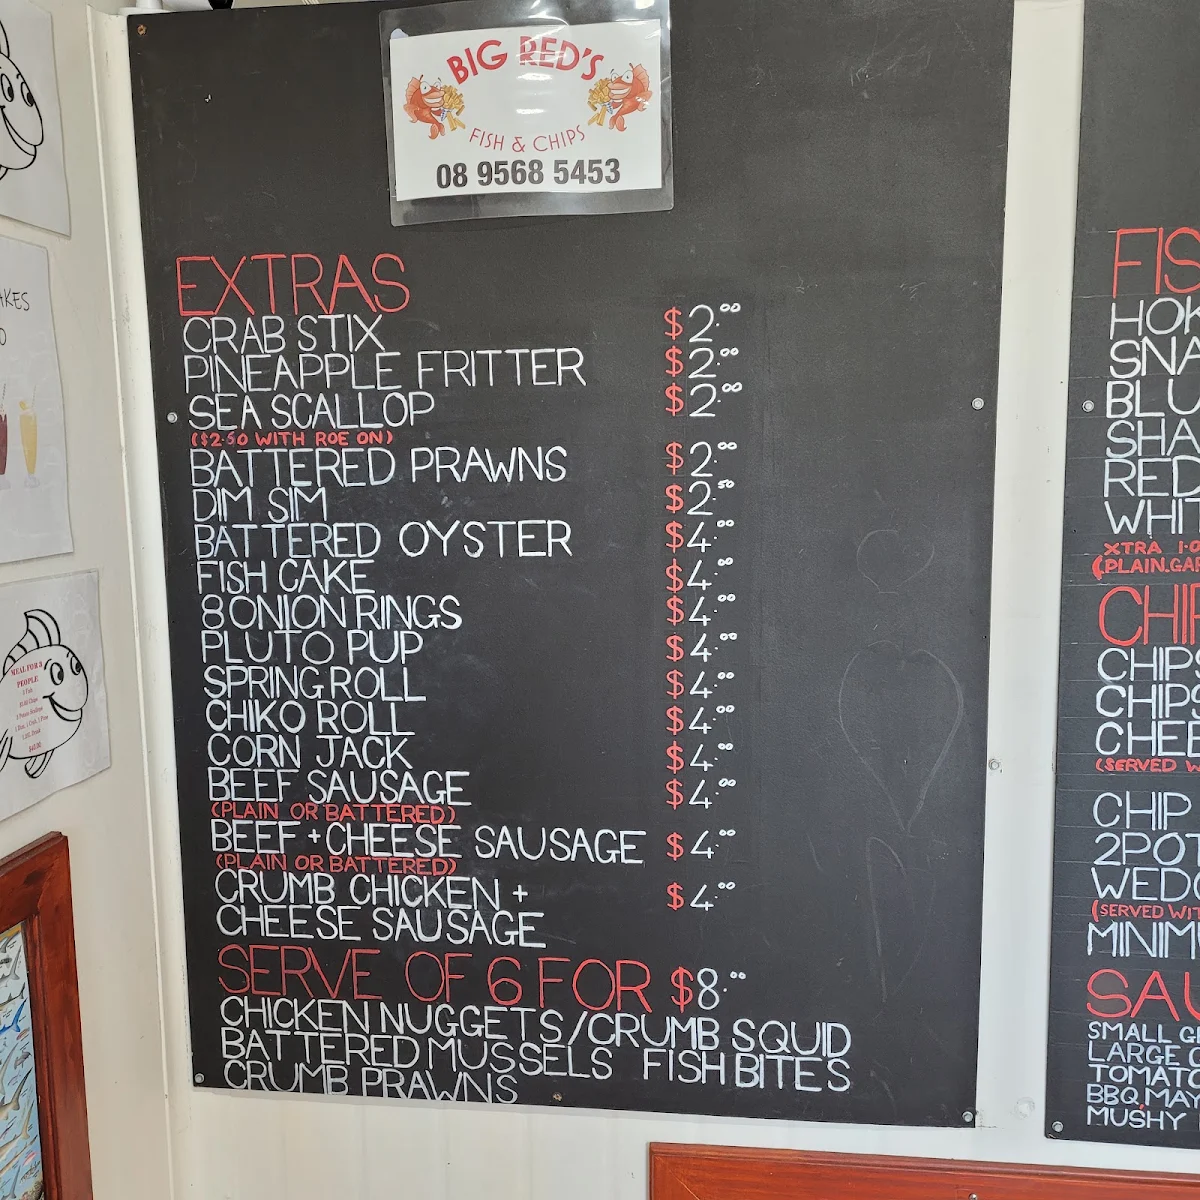 BIG RED'S
FISH & CHIPS
08 9568 5453
EXTRAS
CRAB STIX $2.00
PINEAPPLE FRITTER $2.00
SEA SCALLOP $2.00
($2.50 WITH ROE ON)
BATTERED PRAWNS $2.00
DIM SIM $2.50
BATTERED OYSTER $4.00
FISH CAKE $4.00
8 ONION RINGS $4.00
PLUTO PUP $4.00
SPRING ROLL $4.00
CHIKO ROLL $4.00
CORN JACK $4.00
BEEF SAUSAGE $4.00
(PLAIN OR BATTERED)
BEEF + CHEESE SAUSAGE $4.00
(PLAIN OR BATTERED)
CRUMB CHICKEN + $4.00
CHEESE SAUSAGE
SERVE OF 6 FOR $8.00
CHICKEN NUGGETS/CRUMB SQUID
BATTERED MUSSELS FISH BITES
CRUMB PRAWNS
FIS
HOK
SNA
BLU
SHA
RED
WHI
XTRA 1.0
(PLAIN.GAR
CHIP
CHIPS
CHIPS
CHEE
(SERVED W
CHIP
2POT
WEDG
(SERVED WIT
MINIM
SAU
SMALL G
LARGE G
TOMATO
BBQ MAY
MUSHY
AKES
MEAL FOR 3
PEOPLE